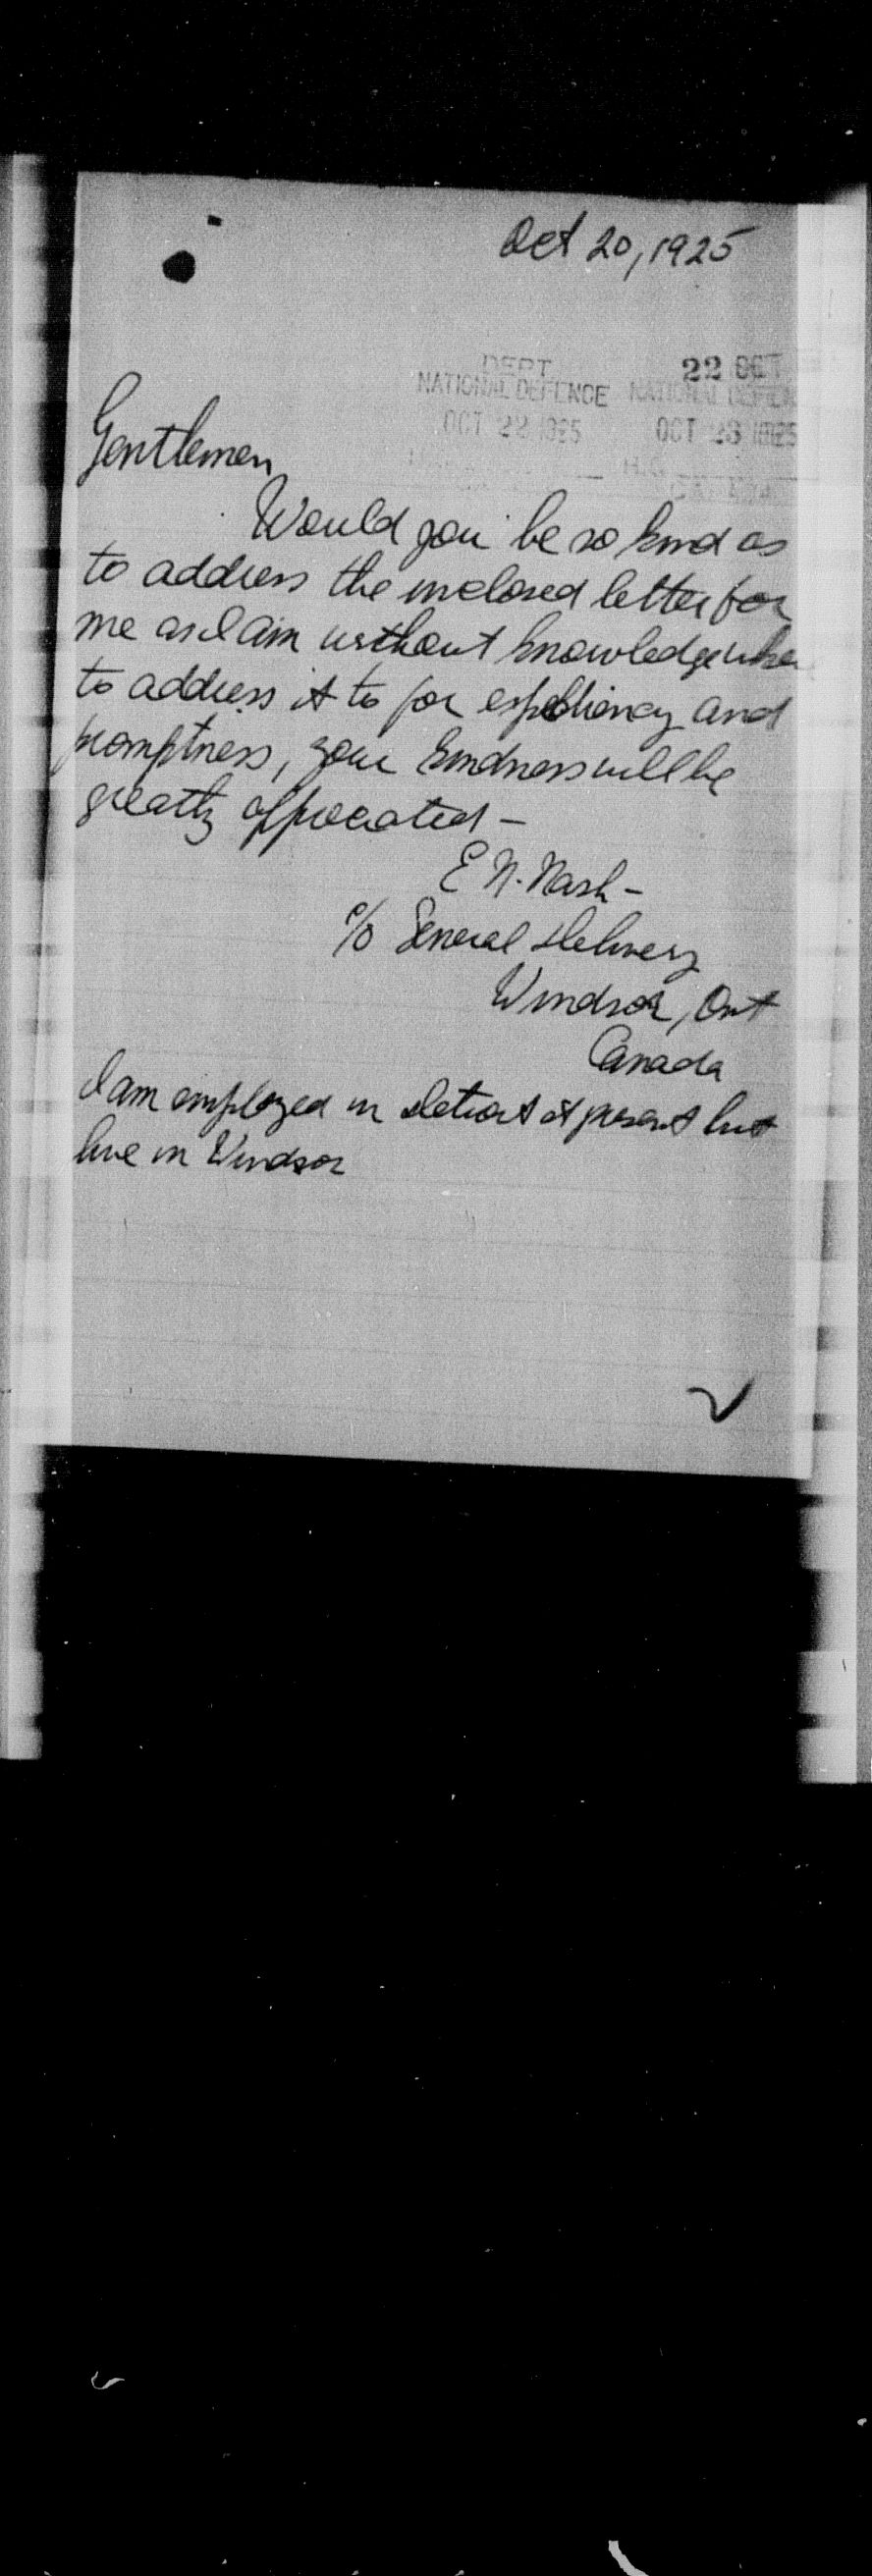 Oct 20, 1925
DEPT 22 OCT
NATIONAL DEFENCE NATIONAL DEFEN
OCT 22 1925 OCT 23 1925
H.Q.
Gentlemen,
Would you be so kind as
to address the inclosed letter for
me as I am without knowledge where
to address it to for expediency and
promptness, your kindness will be
greatly appreciated -
E N. Nash -
c/o General Delivery
Windsor, Ont
Canada
I am employed in Detroit at present but
live in Windsor